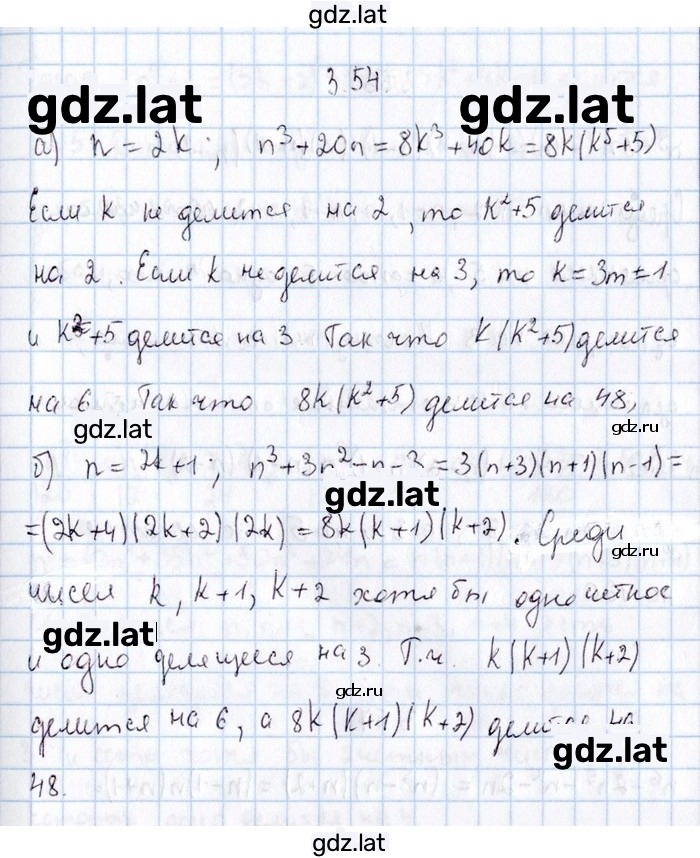 gdz.lat
3.54.
gdz.lat gdz.lat
а) n = 2k ; n³+20n = 8k³+40k = 8k(k⁵+5)
Если k не делится на 2, то k²+5 делится
на 2. Если k не делится на 3, то k=3m±1
и k²+5 делится на 3 Так что k(k²+5) делится
на 6 Так что 8k(k²+5) делится на 48,
gdz.lat gdz.ru
б) n = 2k+1; n³+3n²-n-3 = 3(n+3)(n+1)(n-1) =
gdz.lat
=(2k+4)(2k+2)(2k) = 8k(k+1)(k+2). Среди
gdz.ru
чисел k, k+1, k+2 хотя бы одно четное
gdz.lat
и одно делящееся на 3. Т.ч. k(k+1)(k+2)
gdz.ru
делится на 6, а 8k(k+1)(k+2) делится на
gdz.lat
48.
gdz.lat